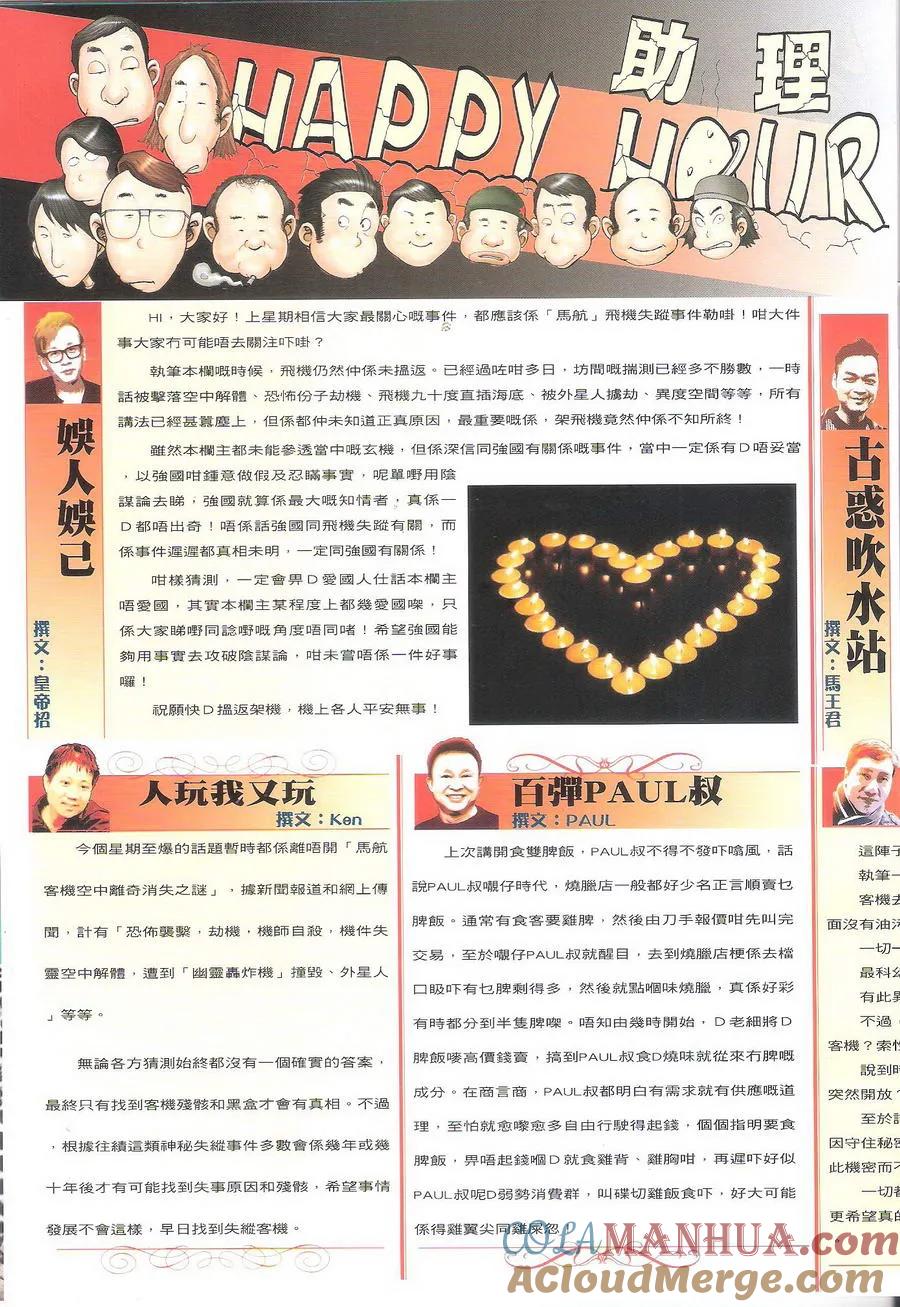 HAPPY 助理 HOUR
娛人娛己
撰文：皇帝招
HI，大家好！上星期相信大家最關心嘅事件，都應該係「馬航」飛機失蹤事件勒啩！咁大件
事大家冇可能唔去關注吓啩？
執筆本欄嘅時候，飛機仍然仲係未搵返。已經過咗咁多日，坊間嘅揣測已經多不勝數，一時
話被擊落空中解體、恐怖份子劫機、飛機九十度直插海底、被外星人擄劫、異度空間等等，所有
講法已經甚囂塵上，但係都仲未知道正真原因，最重要嘅係，架飛機竟然仲係不知所終！
雖然本欄主都未能參透當中嘅玄機，但係深信同強國有關係嘅事件，當中一定係有D唔妥當
，以強國咁鍾意做假及忍瞞事實，呢單嘢用陰
謀論去睇，強國就算係最大嘅知情者，真係一
D都唔出奇！唔係話強國同飛機失蹤有關，而
係事件遲遲都真相未明，一定同強國有關係！
咁樣猜測，一定會畀D愛國人仕話本欄主
唔愛國，其實本欄主某程度上都幾愛國㗎，只
係大家睇嘢同諗嘢嘅角度唔同啫！希望強國能
夠用事實去攻破陰謀論，咁未嘗唔係一件好事
囉！
祝願快D搵返架機，機上各人平安無事！
古惑吹水站
撰文：馬王君
人玩我又玩
撰文：Ken
今個星期至爆的話題暫時都係離唔開「馬航
客機空中離奇消失之謎」，據新聞報道和網上傳
聞，計有「恐怖襲擊，劫機，機師自殺，機件失
靈空中解體，遭到「幽靈轟炸機」撞毀、外星人
」等等。
無論各方猜測始終都沒有一個確實的答案，
最終只有找到客機殘骸和黑盒才會有真相。不過
，根據往績這類神秘失縱事件多數會係幾年或幾
十年後才有可能找到失事原因和殘骸，希望事情
發展不會這樣，早日找到失縱客機。
百彈PAUL叔
撰文：PAUL
上次講開食雙脾飯，PAUL叔不得不發吓噏風，話
說PAUL叔嚫仔時代，燒臘店一般都好少名正言順賣乜
脾飯。通常有食客要雞脾，然後由刀手報價咁先叫完
交易，至於嚫仔PAUL叔就醒目，去到燒臘店梗係去檔
口眨吓有乜脾剩得多，然後就點嗰味燒臘，真係好彩
有時都分到半隻脾㗎。唔知由幾時開始，D老細將D
脾飯嘜高價錢賣，搞到PAUL叔食D燒味就從來冇脾嘅
成分。在商言商，PAUL叔都明白有需求就有供應嘅道
理，至怕就愈嚟愈多自由行駛得起錢，個個指明要食
脾飯，畀唔起錢嗰D就食雞背、雞胸咁，再遲吓好似
PAUL叔呢D弱勢消費群，叫碟切雞飯食吓，好大可能
係得雞翼尖同雞屎忽！
這陣子
執筆一
客機去
面沒有油污
一切一
最科幻
有此異
不過，
客機？索性
說到時
突然開放？
至於
因守住秘密
此機密而不
一切都
更希望真的
COLAMANHUA.com
ACloudMerge.com